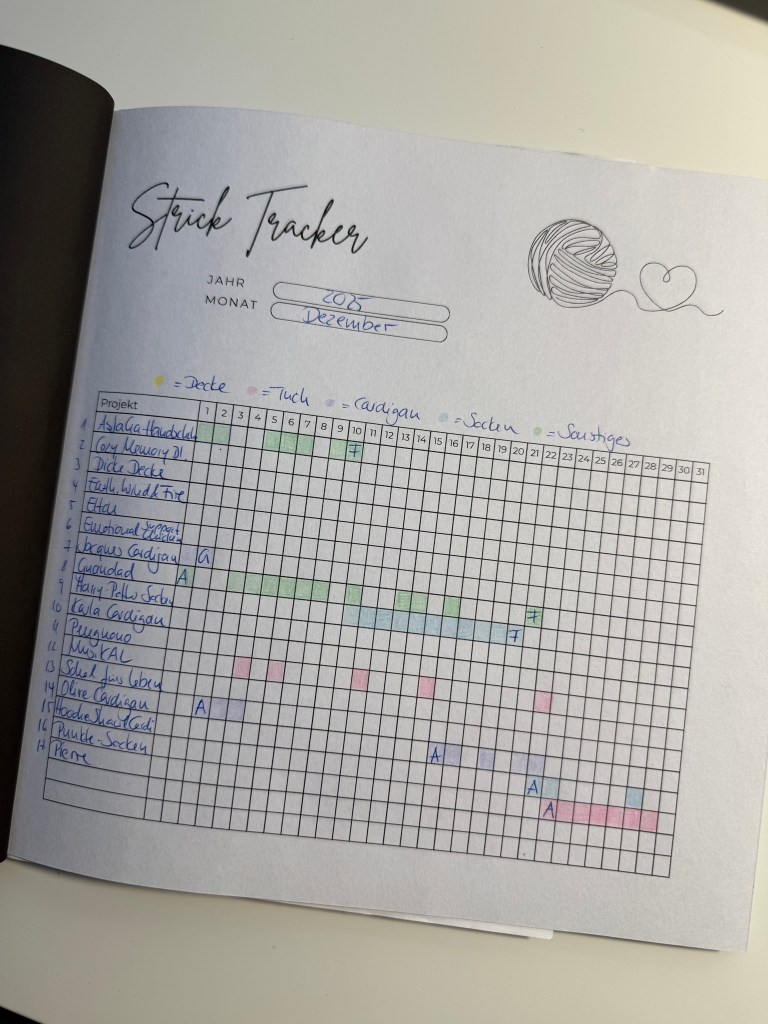 Strick Tracker
JAHR 2025
MONAT Dezember
= Decke = Tuch = Cardigan = Socken = Sonstiges
Projekt 1 2 3 4 5 6 7 8 9 10 11 12 13 14 15 16 17 18 19 20 21 22 23 24 25 26 27 28 29 30 31
1
2 Cozy Memory Bl F
3 Dicke Decke
4 Earth, Wind & Fire
5
6 Emotional Support
7 Jacques Cardigan G
8 A
9 Harry-Potter Socken F
10 Karla Cardigan F
11
12 MusiKAL
13 Schal fürs Leben
14 Olive Cardigan A
15 Hoodie Shawl Cardi
16 Punkte-Socken A
17 Pierre A
A